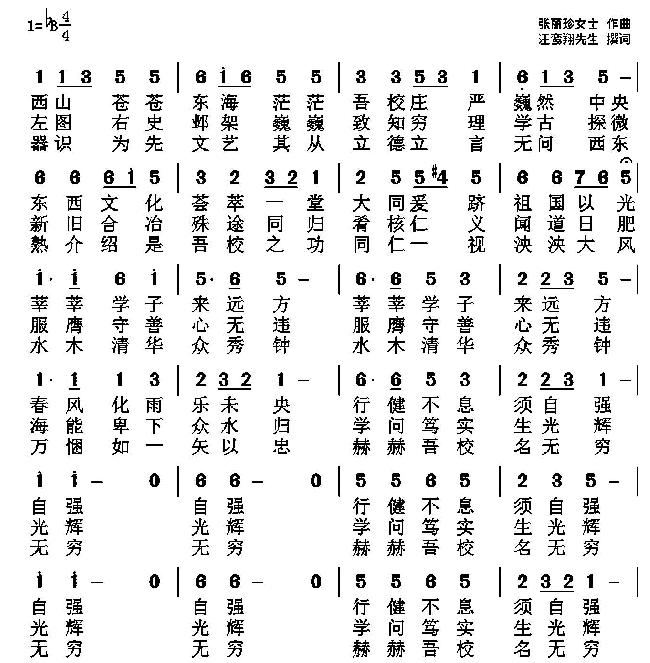 1=♭B 4/4
张丽珍女士 作曲
汪鸾翔先生 撰词
1 1 3 5 5 | 6 i 6 5 5 | 3 3 5 3 1 | 6 1 3 5 5 –
西山苍苍 东海茫茫 吾校庄严 巍然中央
左图右史 邺架巍巍 致知穷理 学古探微
器识为先 文艺其从 立德立言 无问西东
6 6 6 i 5 | 3 2 3 2 1 | 2 5 5 #4 5 | 6 6 7 6 5
东西文化 荟萃一堂 大同爱跻 祖国以光
新旧合冶 殊途同归 肴核仁义 闻道日肥
熟介绍是 吾校之功 同仁一视 泱泱大风
i· i 6 i | 5· 6 5 – | 6· 6 5 3 | 2 2 3 5 –
莘莘学子 来远方 莘莘学子 来远方
服膺守善 心无违 服膺守善 心无违
水木清华 众秀钟 水木清华 众秀钟
1· 1 1 3 | 2 3 2 1 – | 6· 6 5 3 | 2 2 3 1 –
春风化雨 乐未央 行健不息 须自强
海能卑下 众水归 学问笃实 生光辉
万悃如一 矢以忠 赫赫吾校 名无穷
i i – 0 | 6 6 – 0 | 5 5 5 3 | 5 i i –
自强 自强 行健不息 须自强
光辉 光辉 学问笃实 生光辉
无穷 无穷 赫赫吾校 名无穷
i i – 0 | 6 6 – 0 | 5 5 6 5 | 2 3 2 1 –
自强 自强 行健不息 须自强
光辉 光辉 学问笃实 生光辉
无穷 无穷 赫赫吾校 名无穷